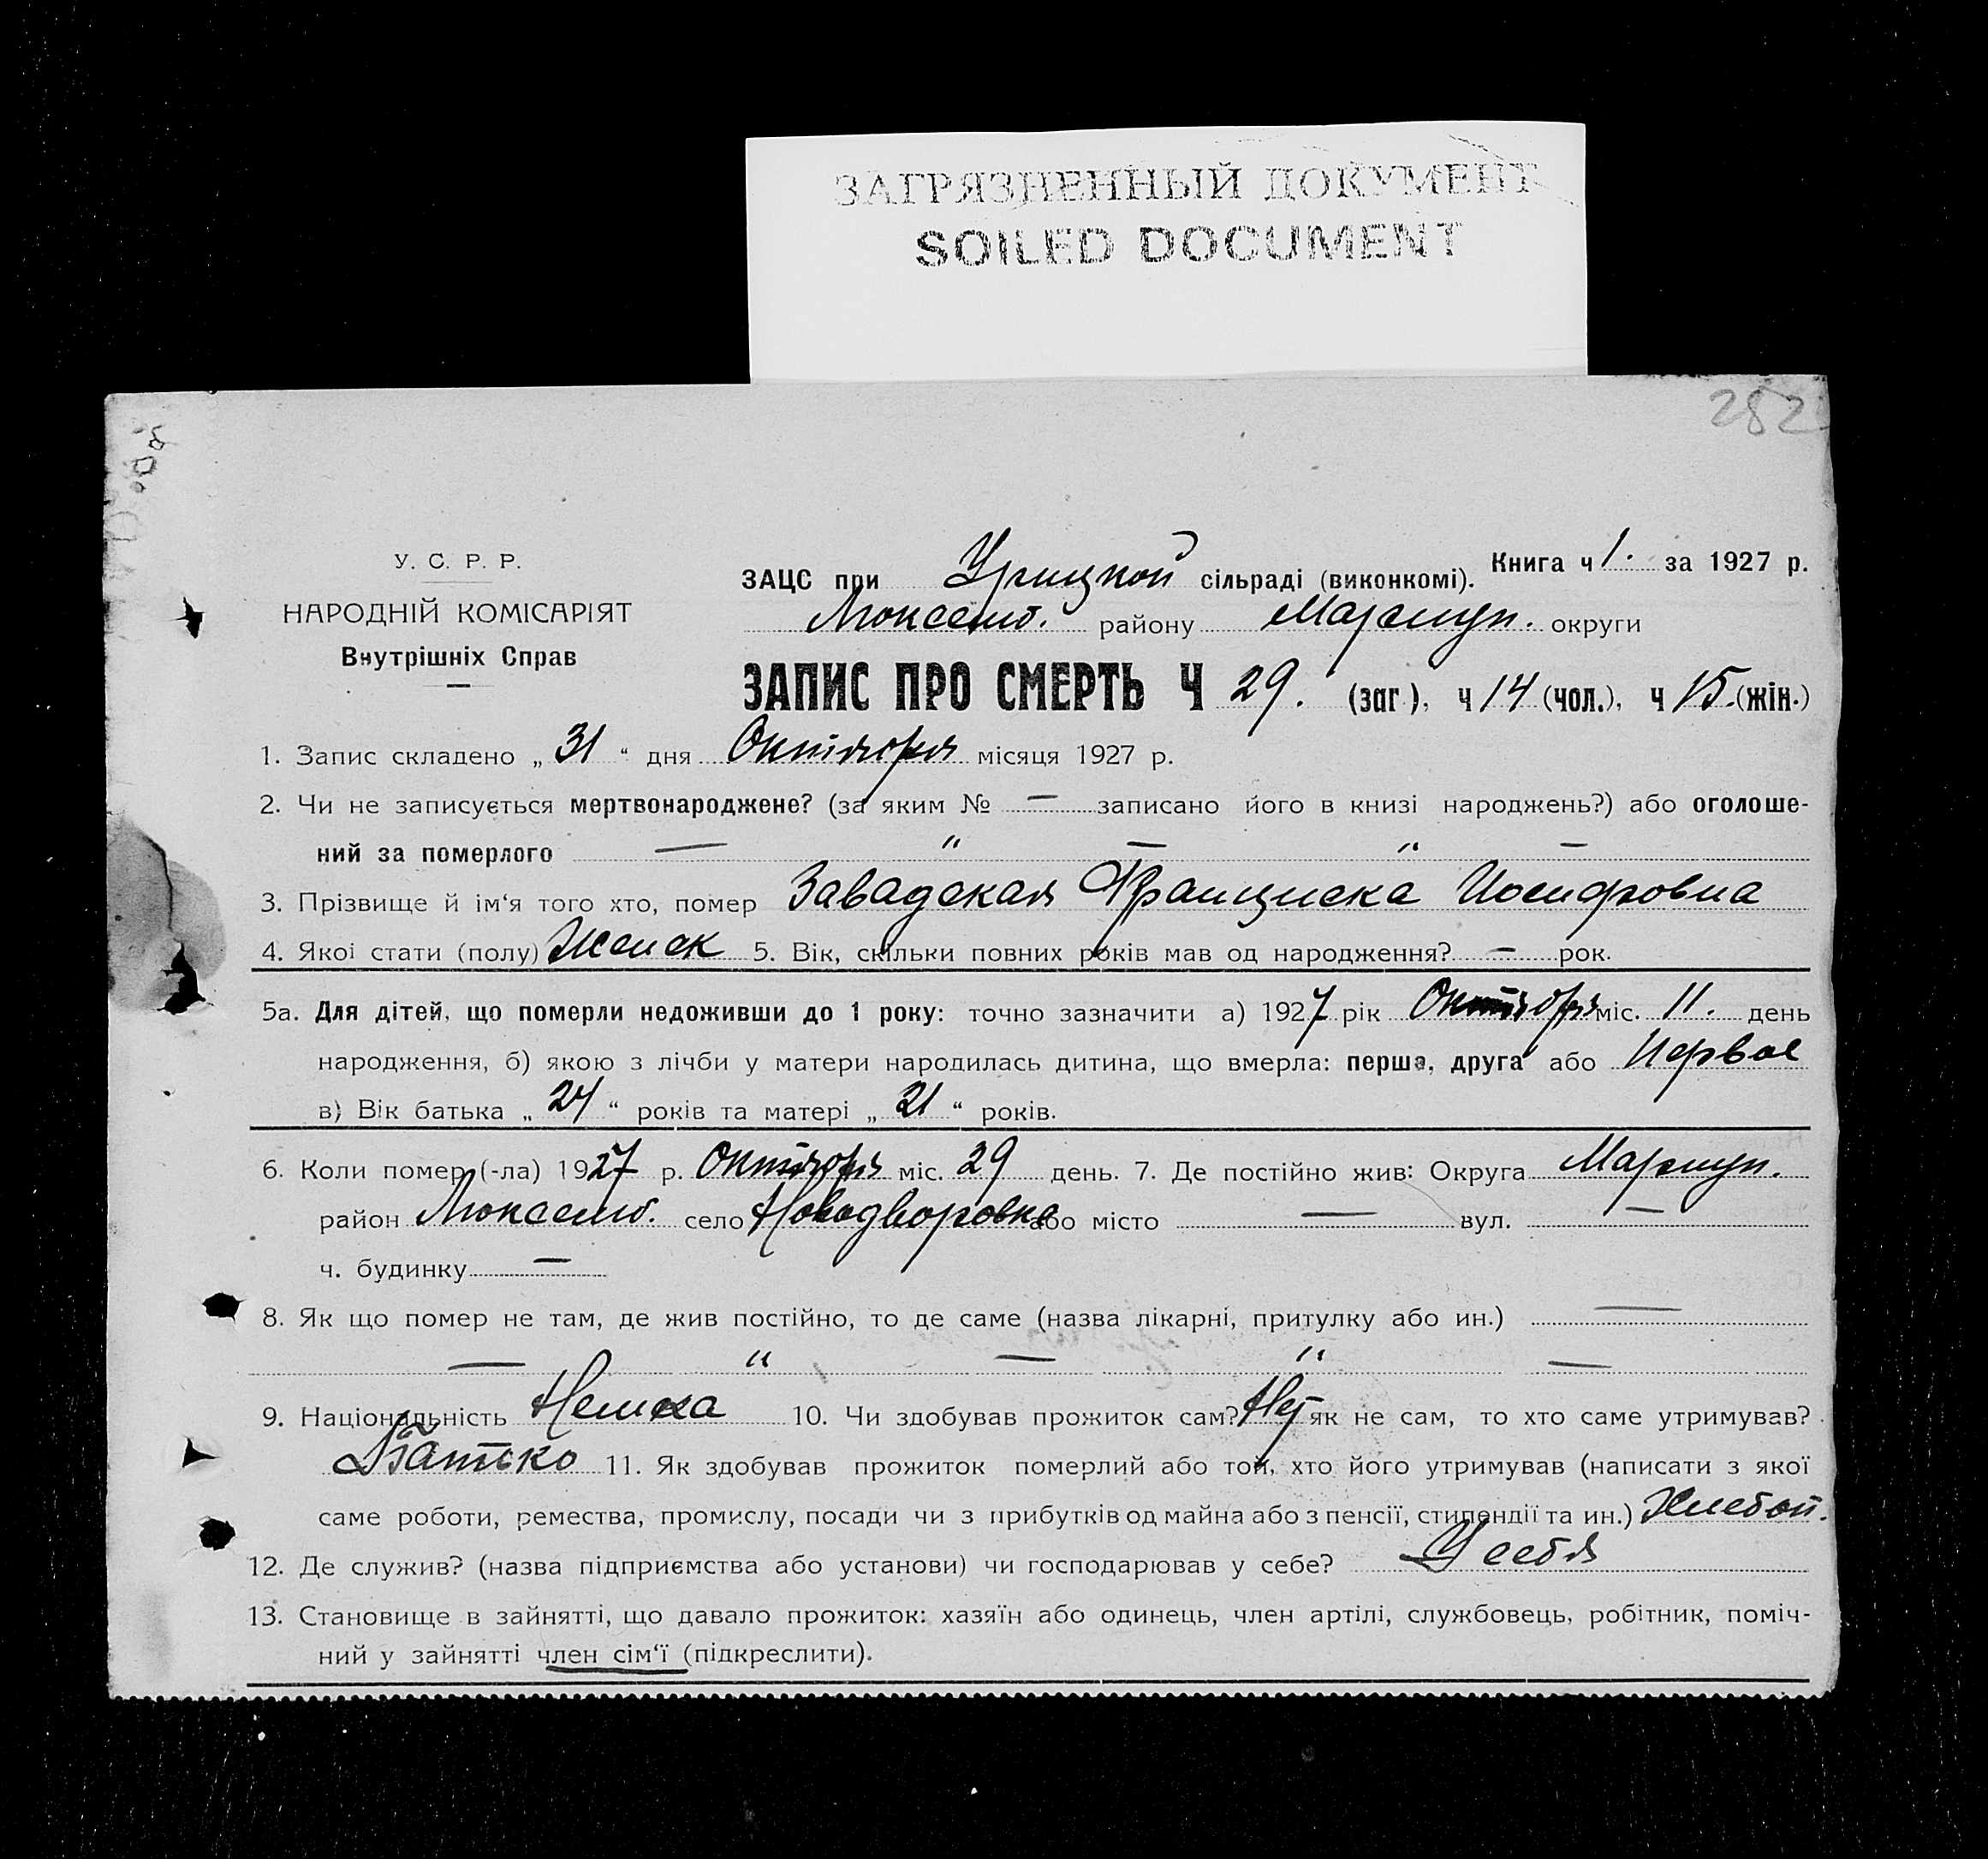 ЗАГРЯЗНЕННЫЙ ДОКУМЕНТ
SOILED DOCUMENT
282
У. С. Р. Р.
НАРОДНІЙ КОМІСАРІЯТ
Внутрішніх Справ
ЗАЦС при Урицкой сільраді (виконкомі). Книга ч 1. за 1927 р.
Люксемб. району Мариуп. округи
ЗАПИС ПРО СМЕРТЬ Ч 29. (заг.), ч 14 (чол.), ч 15. (жін.)
1. Запис складено „ 31 “ дня Октября місяця 1927 р.
2. Чи не записується мертвонароджене? (за яким № — записано його в книзі народжень?) або оголоше-
ний за померлого — „ — „ —
3. Прізвище й ім‘я того хто, помер Завадская Франциска Иосифовна
4. Якої стати (полу) Женск 5. Вік, скільки повних років мав од народження? — рок.
5а. Для дітей, що померли недоживши до 1 року: точно зазначити а) 1927 рік Октября міс. 11. день
народження, б) якою з лічби у матери народилась дитина, що вмерла: перша, друга або Первое
в) Вік батька „ 24 “ років та матері „ 21 “ років.
6. Коли помер (-ла) 1927 р. Октября міс. 29 день. 7. Де постійно жив: Округа Мариуп.
район Люксемб. село Новодворовка або місто — вул. —
ч. будинку —
8. Як що помер не там, де жив постійно, то де саме (назва лікарні, притулку або ин.) —
— „ — „ —
9. Національність Немка 10. Чи здобував прожиток сам? Ні як не сам, то хто саме утримував?
Батько 11. Як здобував прожиток померлий або той, хто його утримував (написати з якої
саме роботи, ремества, промислу, посади чи з прибутків од майна або з пенсії, стипендії та ин.) Хлебоп.
12. Де служив? (назва підприємства або установи) чи господарював у себе? У себя
13. Становище в зайнятті, що давало прожиток: хазяїн або одинець, член артілі, службовець, робітник, поміч-
ний у зайнятті член сім‘ї (підкреслити).